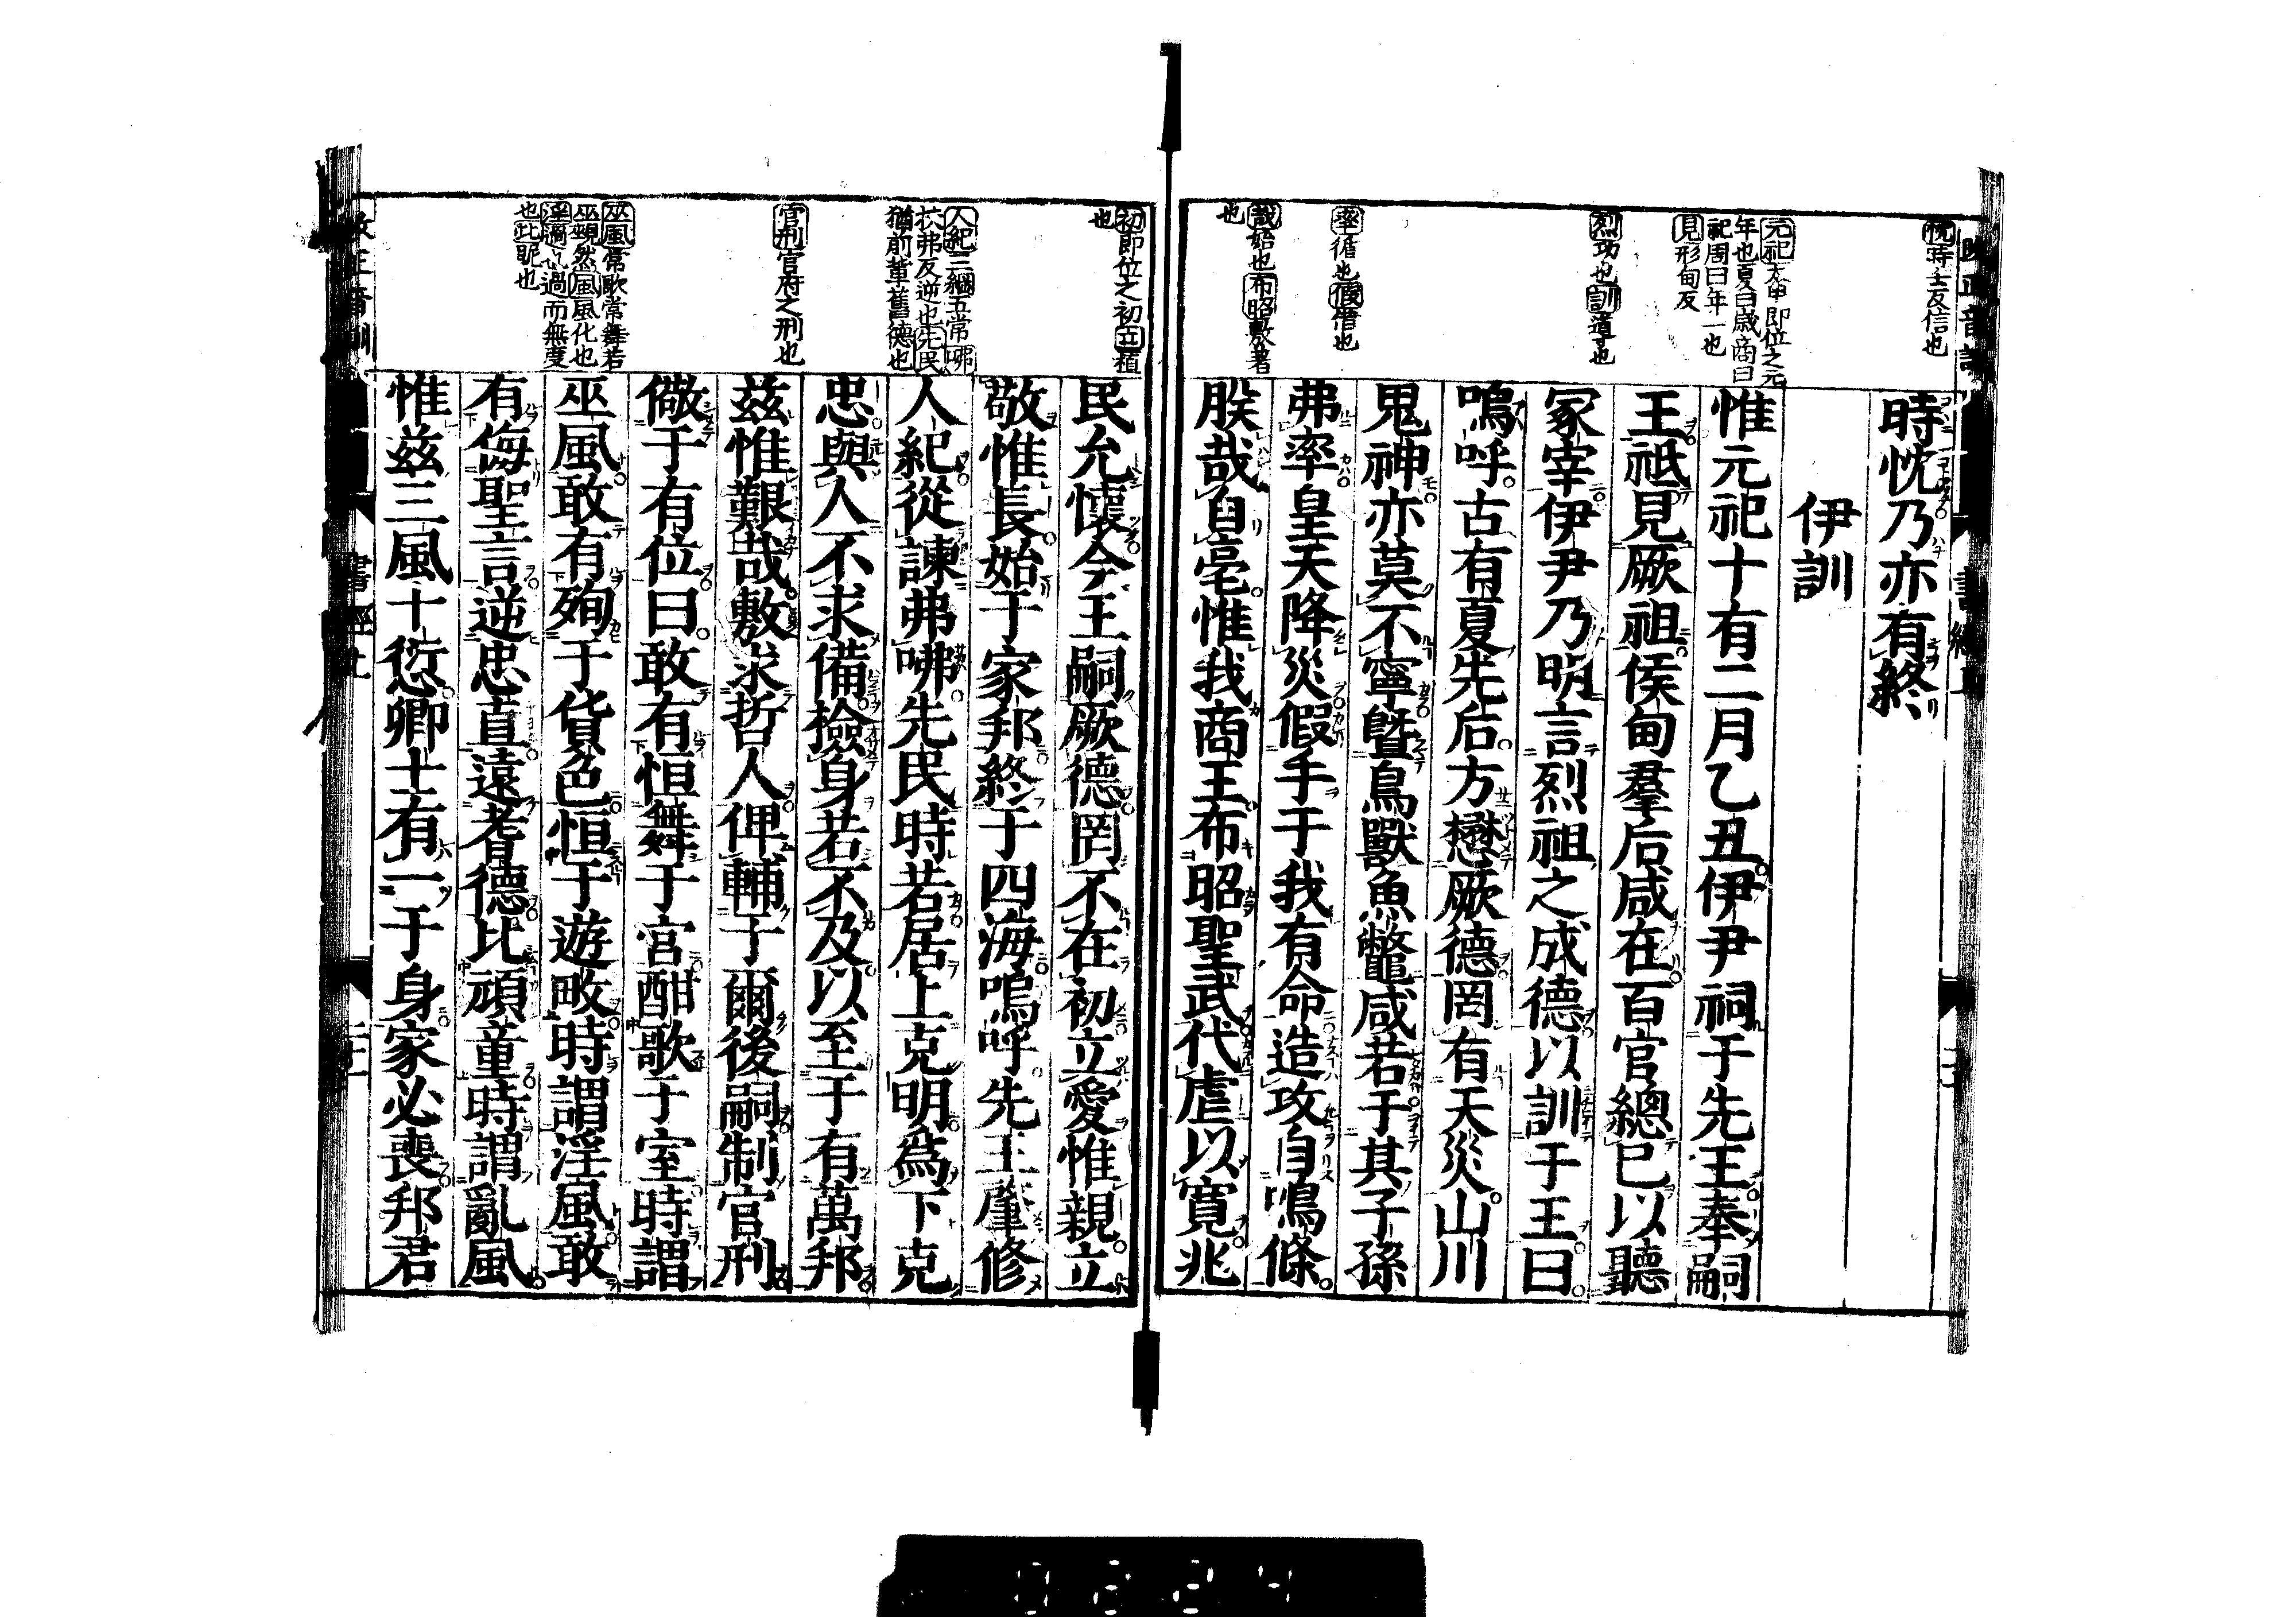 忱時壬反信也
元祀太甲即位之元
年也夏曰歳商曰
祀周曰年一也
見形甸反
烈功也訓導也
率循也假借也
哉始也布昭敷著
也
時忱乃亦有終
伊訓
惟元祀十有二月乙丑伊尹祠于先王奉嗣
王祗見厥祖侯甸羣后咸在百官總已以聽
冢宰伊尹乃明言烈祖之成德以訓于王曰
嗚呼古有夏先后方懋厥德罔有天災山川
鬼神亦莫不寧曁鳥獸魚鼈咸若于其子孫
弗率皇天降災假手于我有命造攻自鳴條
朕哉自亳惟我商王布昭聖武代虐以寛兆
初即位之初立植
也
人紀三綱五常咈
扶弗反逆也先民
猶前輩舊德也
官刑官府之刑也
巫風常歌常舞若
巫覡然風風化也
淫過也過而無度
也比昵也
民允懷今王嗣厥德罔不在初立愛惟親立
敬惟長始于家邦終于四海嗚呼先王肇修
人紀從諫弗咈先民時若居上克明爲下克
忠與人不求備撿身若不及以至于有萬邦
茲惟艱哉敷求哲人俾輔于爾後嗣制官刑
儆于有位曰敢有恒舞于宮酣歌于室時謂
巫風敢有殉于貨色恒于遊畋時謂淫風敢
有侮聖言逆忠直遠耆德比頑童時謂亂風
惟茲三風十愆卿士有一于身家必喪邦君